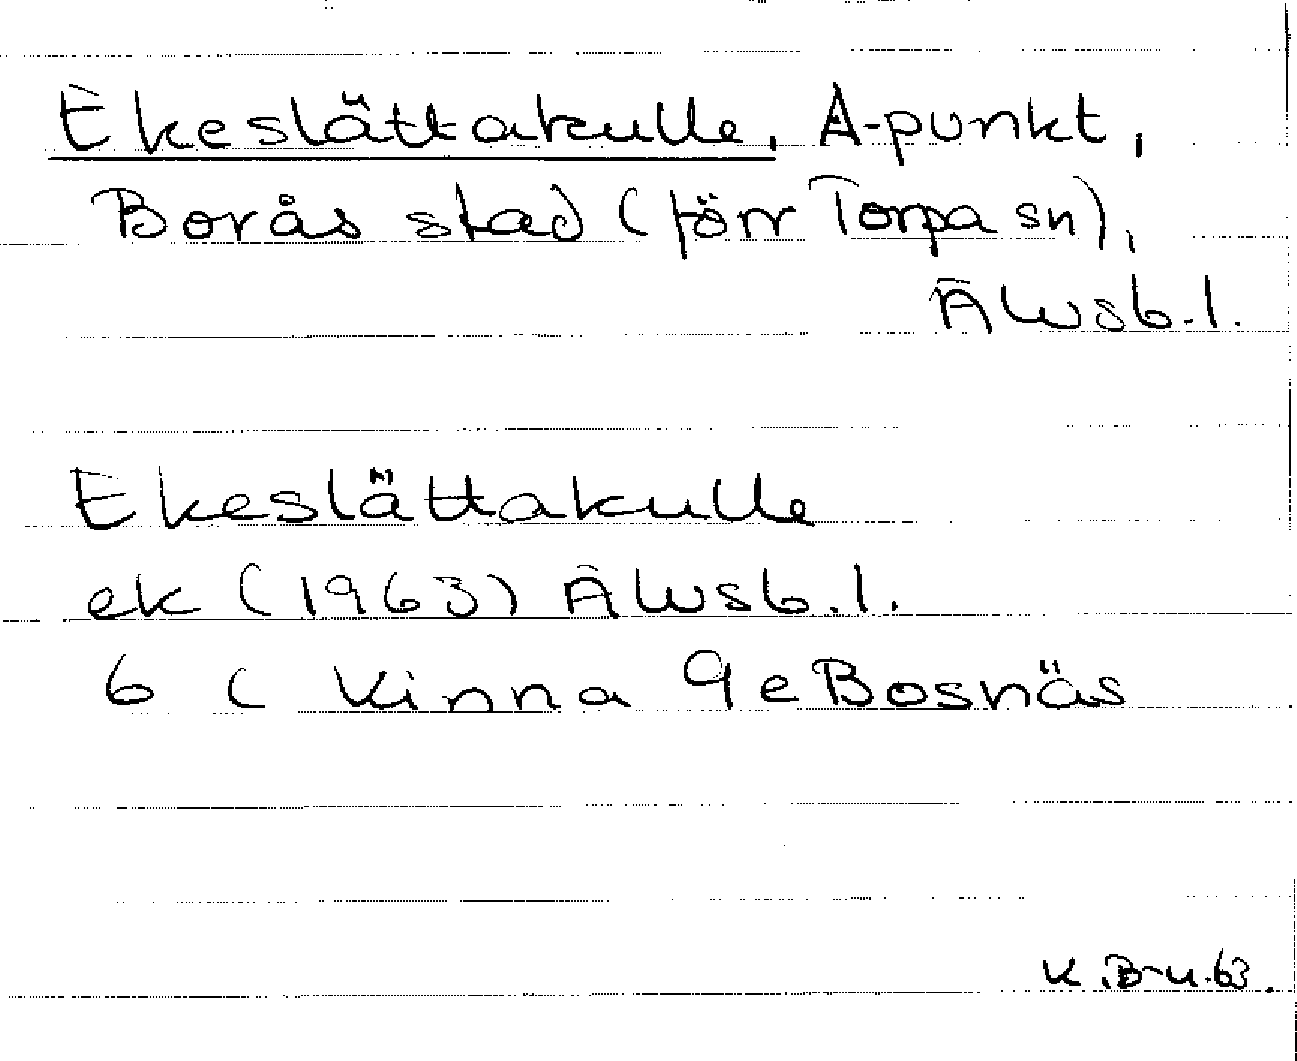 Ekeslättakulle, A-punkt,
Borås stad (förr Torpa sn),
Älvsb.l.
Ekeslättakulle
ek (1963) Älvsb.l.
6 C Kinna 9e Bosnäs
K.B-u.63.